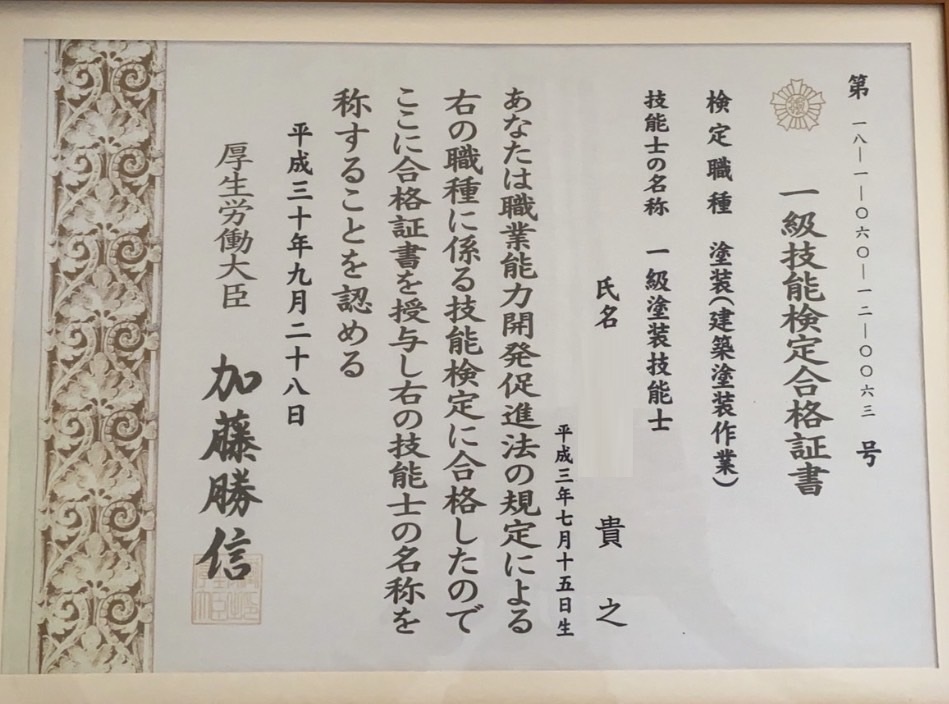 第 一八―一―〇六〇―一二―〇〇六三 号
一級技能検定合格証書
検定職種 塗装(建築塗装作業)
技能士の名称 一級塗装技能士
氏名 貴之
平成三年七月十五日生
あなたは職業能力開発促進法の規定による
右の職種に係る技能検定に合格したので
ここに合格証書を授与し右の技能士の名称を
称することを認める
平成三十年九月二十八日
厚生労働大臣 加藤勝信